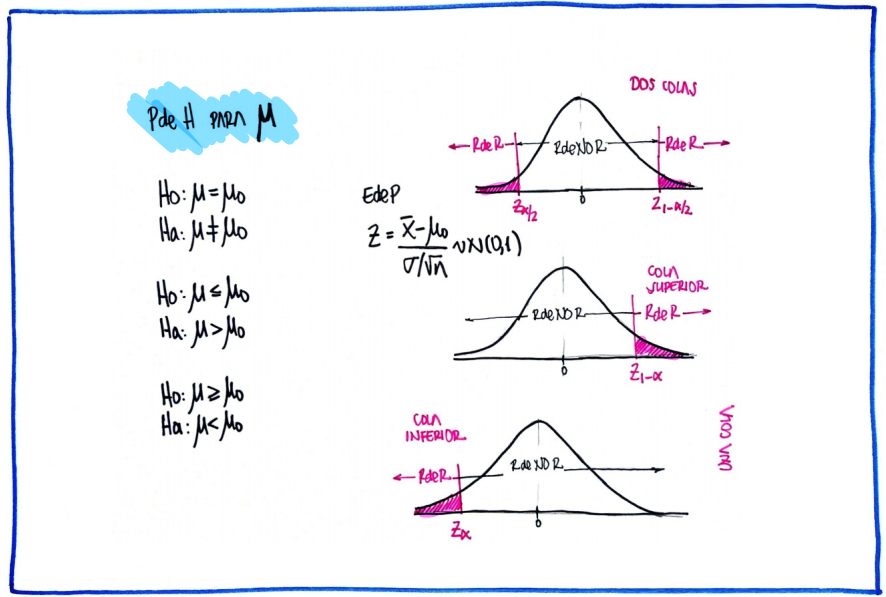 P de H PARA μ
Ho: μ = μo
Ha: μ ≠ μo
Ho: μ ≤ μo
Ha: μ > μo
Ho: μ ≥ μo
Ha: μ < μo
EdeP
Z = (x̄ - μo) / (σ/√n) ~ N(0,1)
DOS COLAS
RdeR
RdeNOR
RdeR
Zα/2
0
Z1-α/2
COLA
SUPERIOR
RdeNOR
RdeR
0
Z1-α
COLA
INFERIOR
RdeR
RdeNOR
Zα
0
UNA COLA